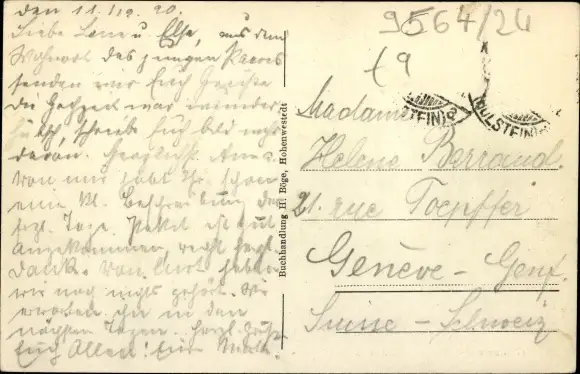 den 11. 1 20.
Liebe Lene u. Else, aus dem
Wohnort des jungen Paares
senden wir Euch Grüße
die Hochzeit war wunder
hübsch, schreibe Euch bald mehr
davon. Herzlichst Anna.
Von mir habt Ihr schon
eine kl. Beschreibung der
Tage. Paket ist gut
angekommen, recht herzl.
Dank. Von haben
wir noch nichts gehört. Wir
erwarten ihn in den
nächsten Tagen. Herzl. Grüße
Euch Allen! Eure
Buchhandlung H. Böge, Hohenwestedt
9564/24
(HOLSTEIN)
Madame
Helene Barraud.
21. rue Toepffer
Genève - Genf.
Suisse - Schweiz